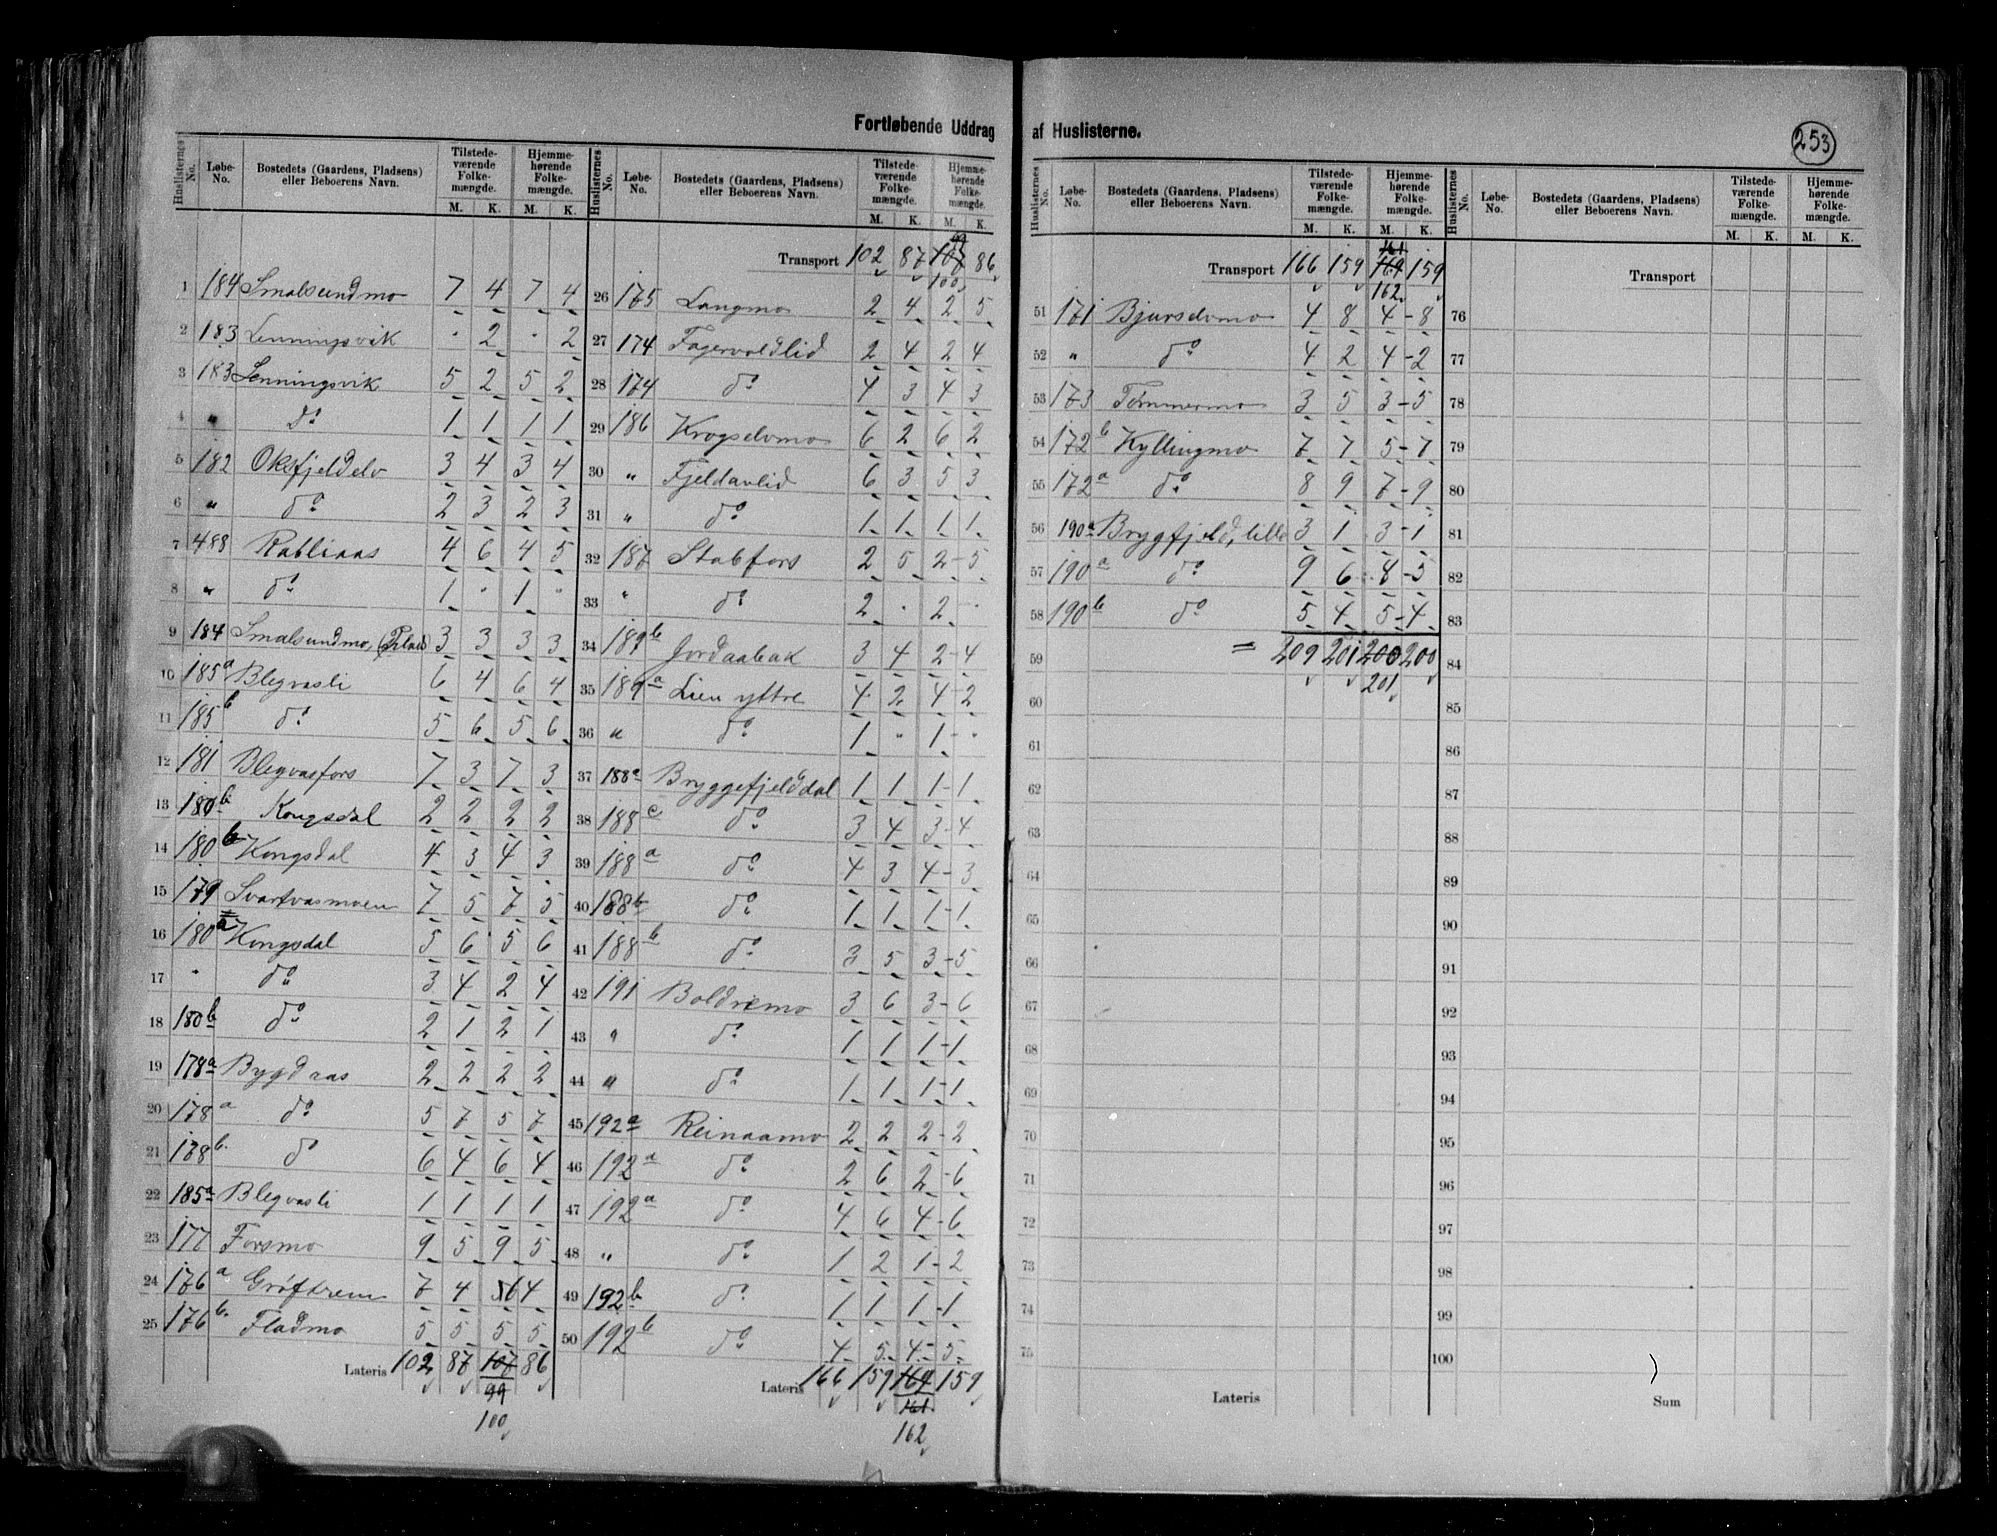 Fortløbende Uddrag af Huslisterne.
253
Huslisternes No. Løbe-No. Bostedets (Gaardens, Pladsens) eller Beboerens Navn. Tilstedeværende Folkemængde. M. K. Hjemmehørende Folkemængde. M. K.
1 184 Smalsundmo 7 4 7 4
2 183 Lenningsvik " 2 " 2
3 183 Lenningsvik 5 2 5 2
4 " do 1 1 1 1
5 182 Oksfjeldelv 3 4 3 4
6 " do 2 3 2 3
7 488 Rabliaas 4 6 4 5
8 " do 1 " 1 "
9 184 Smalsundmo, 3 3 3 3
10 185a Blegvasli 6 4 6 4
11 185b do 5 6 5 6
12 181 Blegvasfors 7 3 7 3
13 180b Kongsdal 2 2 2 2
14 180b Kongsdal 4 3 4 3
15 179 Svartvasmoen 7 5 7 5
16 180a Kongsdal 5 6 5 6
17 " do 3 4 2 4
18 180b do 2 1 2 1
19 178a Bygdaas 2 2 2 2
20 178a do 5 7 5 7
21 178b. do 6 4 6 4
22 185a Blegvasli 1 1 1 1
23 177 Forsmo 9 5 9 5
24 176a Grøftrem 7 4 6 4
25 176b. Fladmo 5 5 5 5
Lateris 102 87 107 86
99
100
Huslisternes No. Løbe-No. Bostedets (Gaardens, Pladsens) eller Beboerens Navn. Tilstedeværende Folkemængde. M. K. Hjemmehørende Folkemængde. M. K.
99
Transport 102 87 107 86
100
26 175 Langmo 2 4 2 5
27 174 Fagervoldlid 2 4 2 4
28 174 do 4 3 4 3
29 186 Krogselvmo 6 2 6 2
30 " Fjeldavlid 6 3 5 3
31 " do 1 1 1 1
32 187 Stabfors 2 5 2-5
33 " do 2 " 2-"
34 189b Jordaabak 3 4 2-4
35 189a Lien yttre 4 2 4-2
36 " do 1 " 1-"
37 188a Bryggefjelddal 1 1 1-1
38 188c do 3 4 3-4
39 188a do 4 3 4-3
40 188b do 1 1 1-1
41 188b do 3 5 3-5
42 191 Boldremo 3 6 3-6
43 " do 1 1 1-1
44 " do 1 1 1-1
45 192a Reinaamo 2 2 2-2
46 192a do 2 6 2-6
47 192a do 4 6 4-6
48 " do 1 2 1-2
49 192b do 1 1 1-1
50 192b do 4 5 4-5
Lateris 166 159 169 159
161
162
Huslisternes No. Løbe-No. Bostedets (Gaardens, Pladsens) eller Beboerens Navn. Tilstedeværende Folkemængde. M. K. Hjemmehørende Folkemængde. M. K.
161
Transport 166 159 169 159
162
51 171 Bjurselvmo 4 8 4-8
52 " do 4 2 4-2
53 173 Tømmermo 3 5 3-5
54 172b Kyllingmo 7 7 5-7
55 172a do 8 9 7-9
56 190a Bryggfjeld, lille 3 1 3-1
57 190a do 9 6 8-5
58 190b do 5 4 5-4
59 = 209 201 200 200
60 201
61
62
63
64
65
66
67
68
69
70
71
72
73
74
75
Lateris
Huslisternes No. Løbe-No. Bostedets (Gaardens, Pladsens) eller Beboerens Navn. Tilstedeværende Folkemængde. M. K. Hjemmehørende Folkemængde. M. K.
Transport
76
77
78
79
80
81
82
83
84
85
86
87
88
89
90
91
92
93
94
95
96
97
98
99
100
Sum